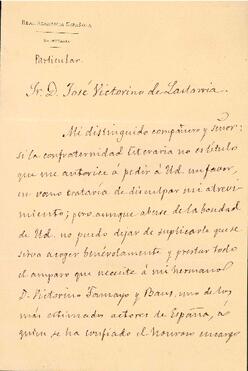 REAL ACADEMIA ESPAÑOLA
Particular.
Sr. D. José Victorino de Lastarria
Mi distinguido compañero y señor:
si la confraternidad literaria no es título
que me autorice á pedir á Ud. un favor,
en vano trataría de disculpar mi atrevi-
miento; pero aunque abuse de la bondad
de Ud. no puedo dejar de suplicarle que se
sirva acoger benévolamente y prestar todo
el amparo que necesite á mi hermano
D. Victorino Tamayo y Baus, uno de los
más estimados actores de España, á
quien se ha confiado el honroso encargo